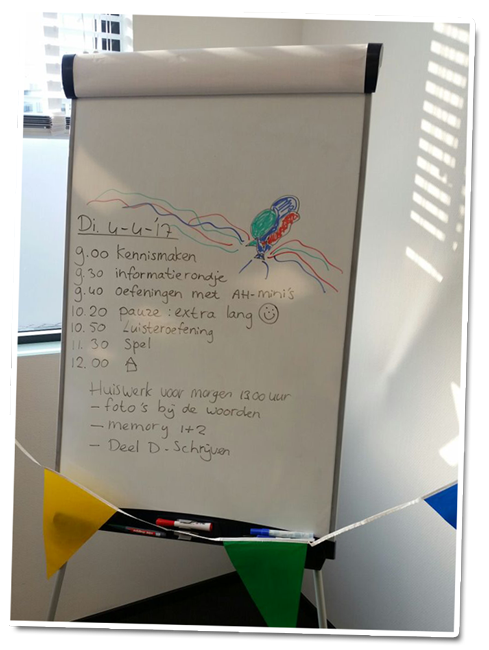 Di. 4-4-'17
9.00 Kennismaken
9.30 informatierondje
9.40 oefeningen met AH-mini's
10.20 pauze : extra lang
10.50 Luisteroefening
11.30 Spel
12.00
Huiswerk voor morgen 13.00 uur
- foto's bij de woorden
- memory 1+2
- Deel D - Schrijven